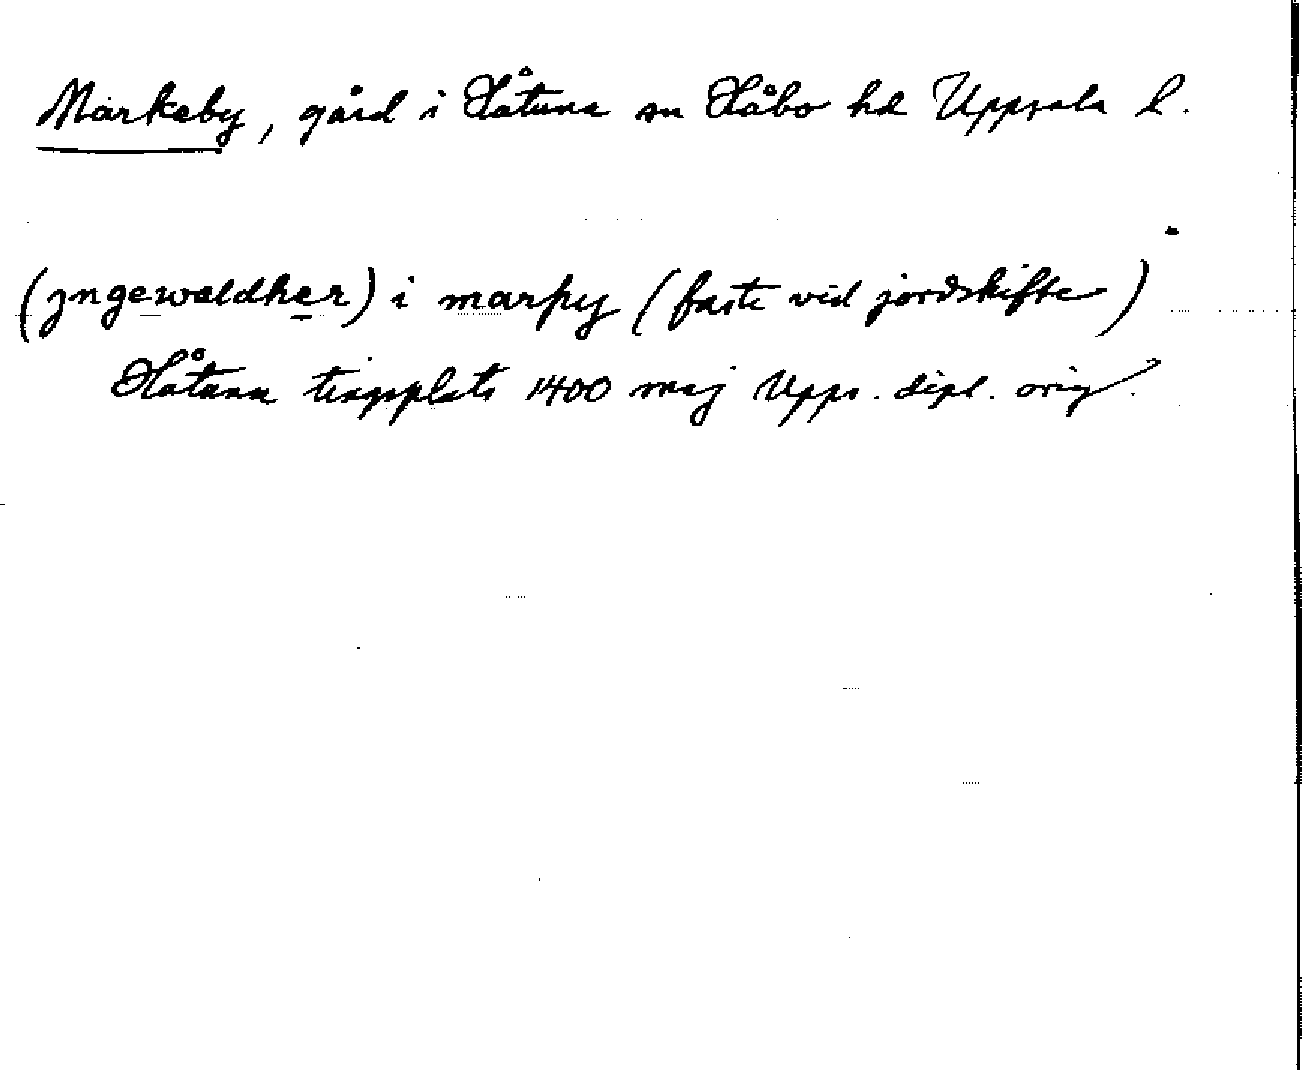 Markeby, gård i Håtuna sn Håbo hd Uppsala l.
(jngewaldher) i marþy (faste vid jordskifte)
Håtuna tingsplats 1400 maj Upps. dipl. orig.